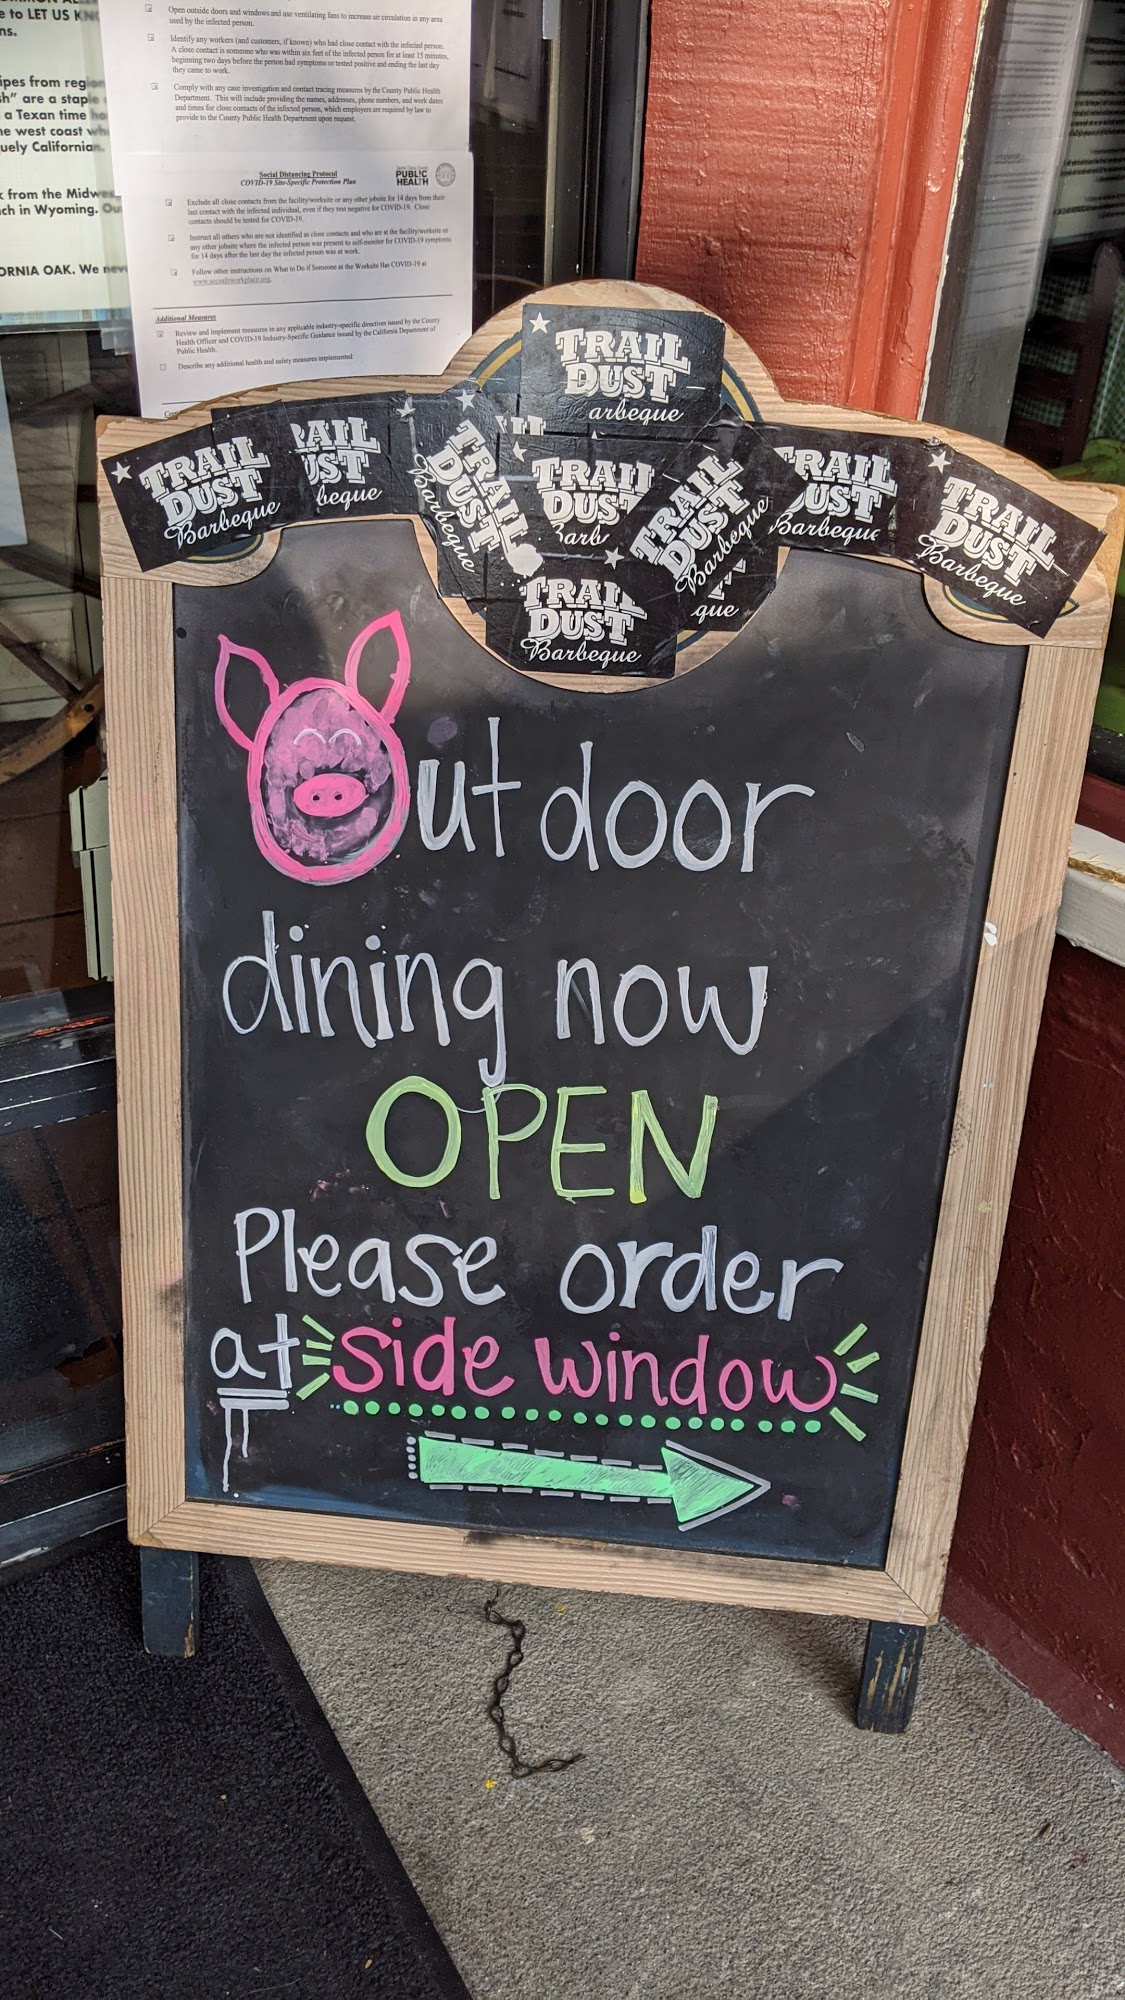 e to LET US KN
ns.
ipes from region
sh" are a staple
a Texan time ho
he west coast wh
uely Californian.
k from the Midwes
ch in Wyoming. Ou
ORNIA OAK. We neve
Open outside doors and windows and use ventilating fans to increase air circulation in any area
used by the infected person.
Identify any workers (and customers, if known) who had close contact with the infected person.
A close contact is someone who was within six feet of the infected person for at least 15 minutes,
beginning two days before the person had symptoms or tested positive and ending the last day
they came to work.
Comply with any case investigation and contact tracing measures by the County Public Health
Department. This will include providing the names, addresses, phone numbers, and work dates
and times for close contacts of the infected person, which employers are required by law to
provide to the County Public Health Department upon request.
Social Distancing Protocol
COVID-19 Site-Specific Protection Plan
PUBLIC
HEALTH
Exclude all close contacts from the facility/worksite or any other jobsite for 14 days from their
last contact with the infected individual, even if they test negative for COVID-19. Close
contacts should be tested for COVID-19.
Instruct all others who are not identified as close contacts and who are at the facility/worksite or
any other jobsite where the infected person was present to self-monitor for COVID-19 symptoms
for 14 days after the last day the infected person was at work.
Follow other instructions on What to Do if Someone at the Worksite Has COVID-19 at
www.sccsafeworkplace.org.
Additional Measures
Review and implement measures in any applicable industry-specific directives issued by the County
Health Officer and COVID-19 Industry-Specific Guidance issued by the California Department of
Public Health.
Describe any additional health and safety measures implemented:
TRAIL
DUST
arbeque
TRAIL
DUST
Barbeque
RAIL
UST
beque
TRAIL
DUST
Barbeque
TRAIL
DUST
Barb
TRAIL
DUST
Barbeque
TRAIL
DUST
Barbeque
TRAIL
DUST
Barbeque
TRAIL
DUST
Barbeque
que
Outdoor
dining now
OPEN
Please order
at side window